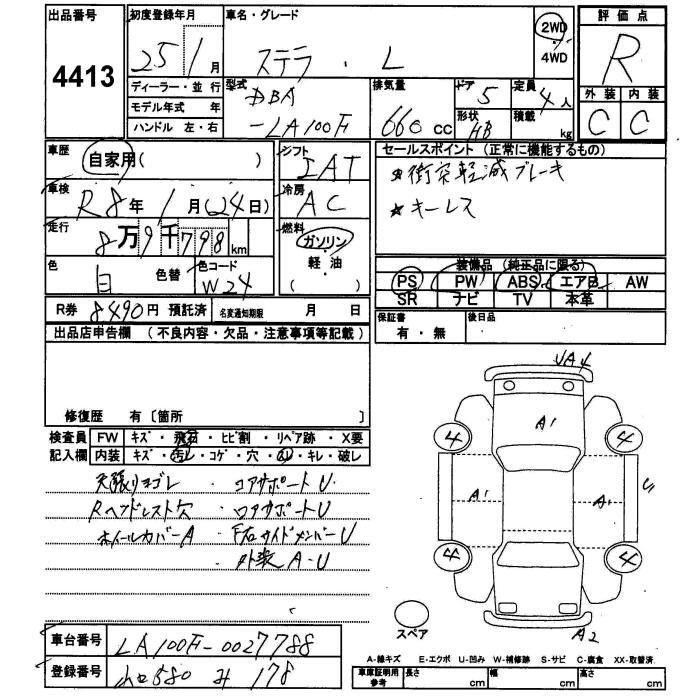 出品番号
4413
初度登録年月
25 1月
ディーラー・並 行
モデル年式 年
ハンドル 左・右
車名・グレード
ステラ・L
2WD
4WD
評価点
R
外装 内装
C C
型式
DBA
-LA100F
排気量
660 CC
ドア
5
形状
HB
定員
4人
積載
kg
車歴
自家用( )
車検
R8年1月(24日)
走行
8万9千798km
色
白 色替
色コード
W24
R券 8490円 預託済
名変通知期限 月 日
シフト
IAT
冷房
AC
燃料
ガソリン
軽・油
( )
セールスポイント (正常に機能するもの)
★衝突軽減ブレーキ
★キーレス
装備品 (純正品に限る)
PS PW ABS エアB AW
SR ナビ TV 本革
保証書
有・無
後日品
出品店申告欄 (不良内容・欠品・注意事項等記載)
修復歴 有〔箇所 〕
検査員
記入欄
FW キズ・飛石・ヒビ割・リペア跡・X要
内装 キズ・汚レ・コゲ・穴・凹レ・キレ・破レ
天張りヨゴレ ・コアサポートU
Rヘッドレスト欠 ・ロアサポートU
ホイールカバーA ・F右サイドメンバーU
・外装A-U
UA4
A1
4 4
A1 A1 U
4 4
A2
スペア
A-線キズ E-エクボ U-凹み W-補修跡 S-サビ C-腐食 XX-取替済
車台番号 LA100F-0027788
登録番号 580 み 178
車庫証明用
参考
長さ cm 幅 cm 高さ cm